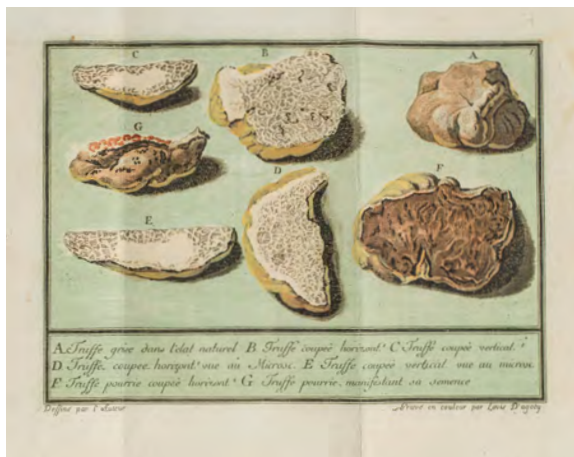 C
B
A
G
D
F
E
A Truffe grise dans l'état naturel B Truffe coupeé horizont.t C Truffe coupeé vertical.t
D Truffe, coupeé, horizont.t vue au Microsc. E Truffe coupeé vertical. vue au microsc.
F Truffe pourrie coupeé horizont.t G Truffe pourrie, manifestant sa semence
Dessiné par l'Auteur
en couleur par Louis